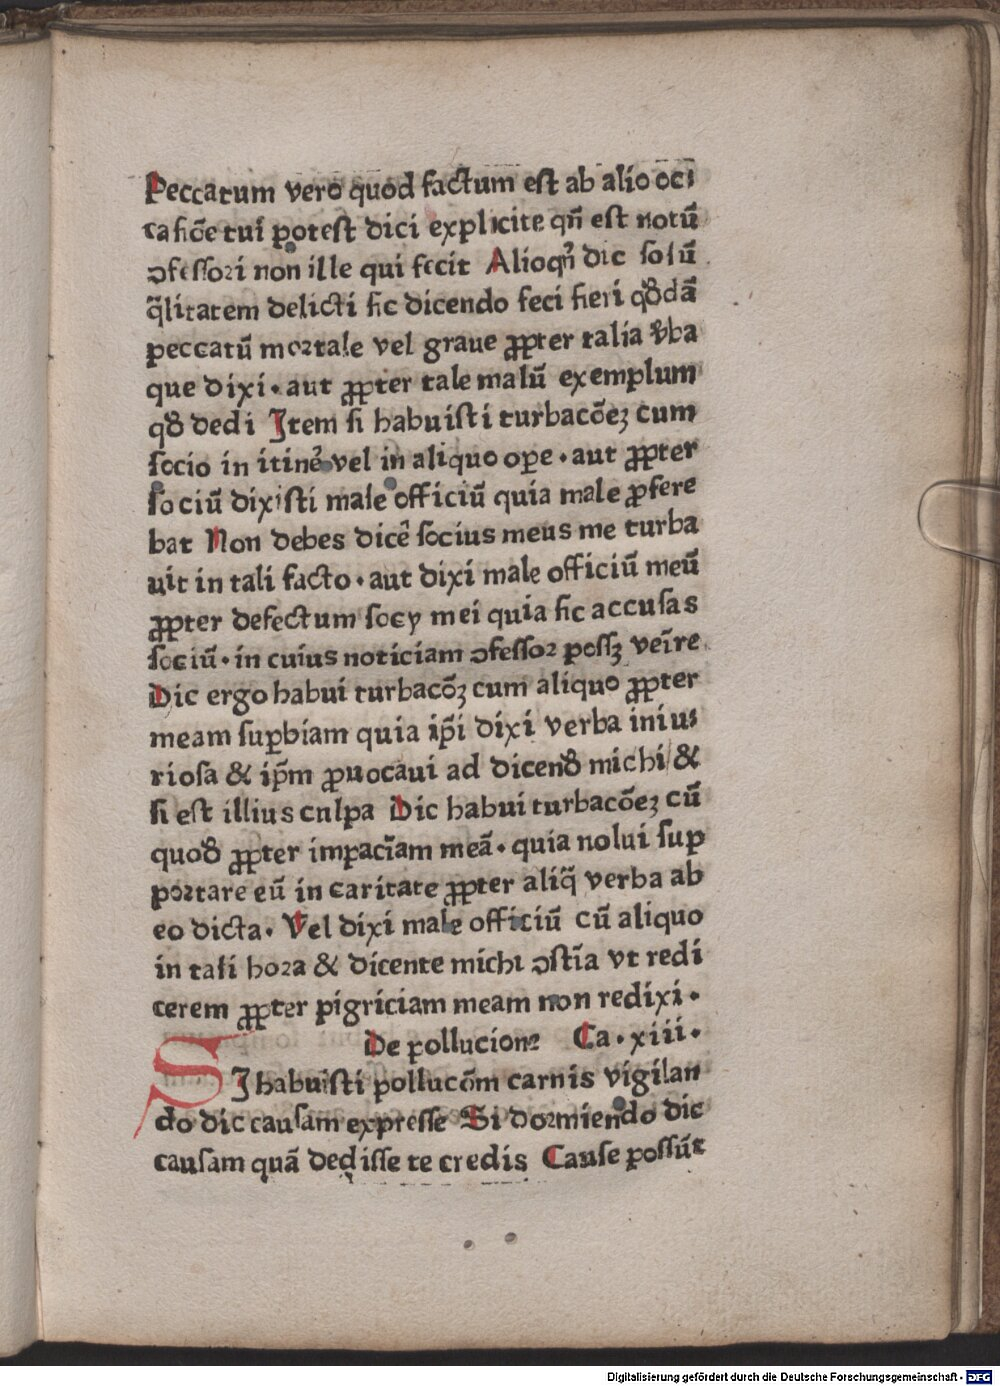 Peccatum vero quod factum est ab alio oc⸗
casiōe tui potest dici explicite qñ est notū
ↄfessori non ille qui fecit Alioqn̉ dic solū
q̄litatem delicti sic dicendo feci fieri qȣdā
peccatū moꝛtale vel graue ꝓpter talia v̓ba
que dixi · aut ꝓpter tale malū exemplum
qȣ dedi Item si habuisti turbacōeꝫ cum
socio in itinẻ vel in aliquo oꝑe · aut ꝓpter
sociū dixisti male officiū quia male ꝓfere
bat Non debes dicē socius meus me turba
uit in tali facto · aut dixi male officiū meū
ꝓpter defectum socy mei quia sic accusas
sociū · in cuius noticiam ↄfessoꝛ possꝫ veīre
Dic ergo habui turbacōꝫ cum aliquo ꝓpter
meam suꝑbiam quia ip̄i dixi verba iniu⸗
riosa & ip̄m ꝓuocaui ad dicendȣ michi & 
si est illius culpa Dic habui turbacōeꝫ cū
quodȣ ꝓpter impacīam meā · quia nolui sup
poꝛtare eū in caritate ꝓpter aliq̄ verba ab
eo dicta · Vel dixi male officiū cū aliquo
in tali hoꝛa & dicente michi ↄstīa vt redi
cerem ꝓpter pigriciam meam non redixi ·
De pollucione Ca · xiii ·
SI habuisti pollucōm carnis vigilan
do dic causam expresse Si doꝛmiendo dic
causam quā dedisse te credis Cause possūt
Digitalisierung gefördert durch die Deutsche Forschungsgemeinschaft - DFG